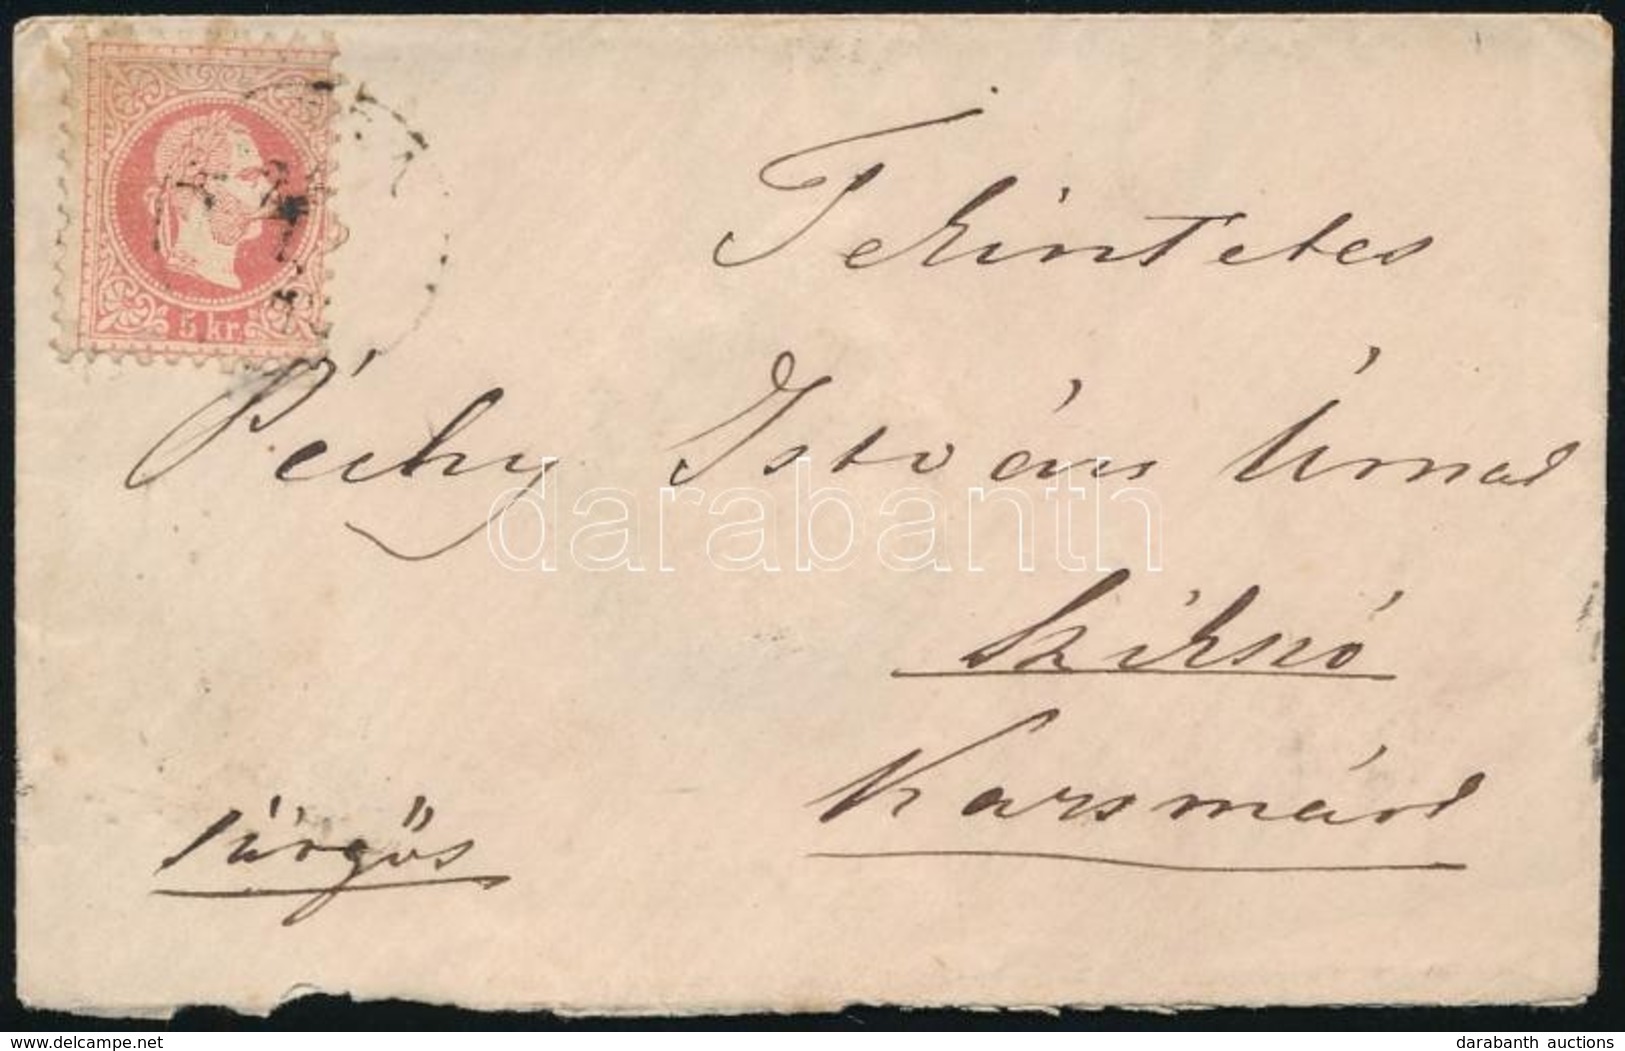 5 kr.
Tekintetes
Péchy István Úrnak
Szikszó
Karsmárd
sürgös
darabanth
www.delcampe.net
darabanth auctions